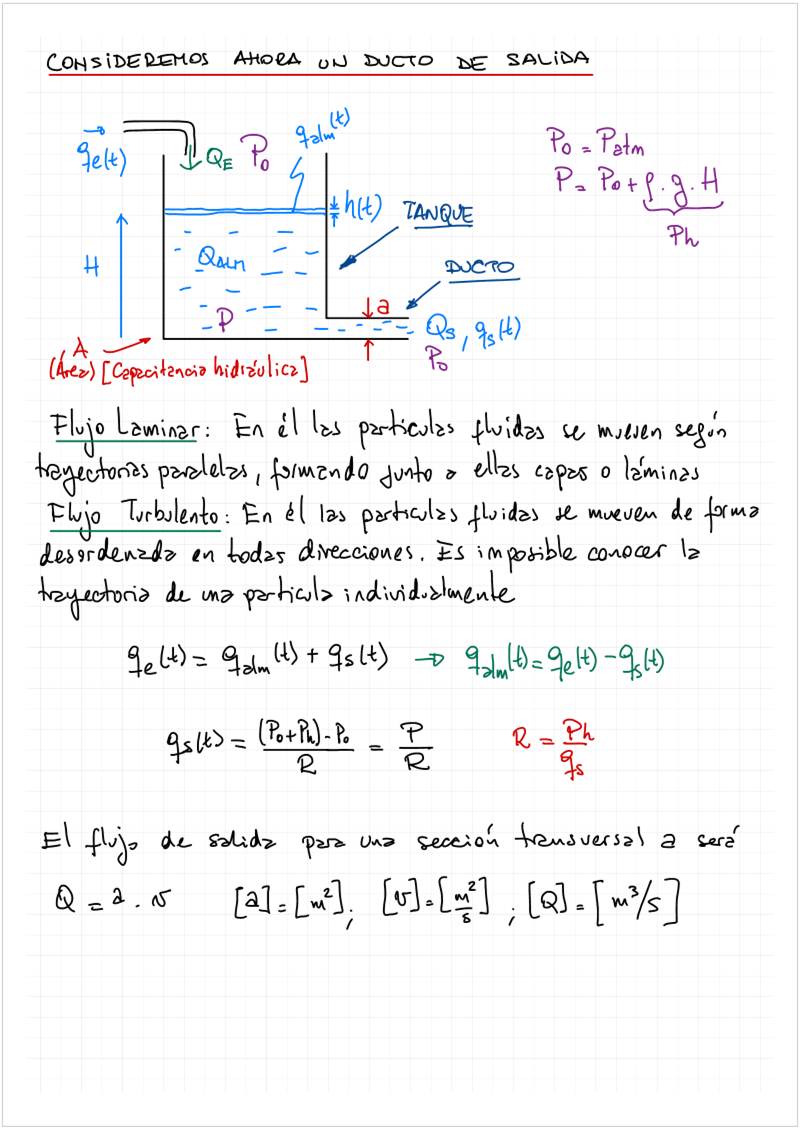 CONSIDEREMOS AHORA UN DUCTO DE SALIDA
qe(t)
QE
P0
qalm(t)
P0 = Patm
P = P0 + ρ.g.H
Ph
h(t)
TANQUE
H
QALM
DUCTO
a
P
Qs, qs(t)
P0
A
(Área) [Capacitancia hidráulica]
Flujo Laminar: En él las particulas fluidas se mueven según
trayectorias paralelas, formando junto a ellas capas o láminas
Flujo Turbulento: En él las particulas fluidas se mueven de forma
desordenada en todas direcciones. Es imposible conocer la
trayectoria de una particula individualmente
qe(t) = qalm(t) + qs(t) → qalm(t) = qe(t) - qs(t)
qs(t) = (P0+Ph)-P0 / R = P / R    R = Ph / qs
El flujo de salida para una sección transversal a será
Q = a . v    [a] = [m²]; [v] = [m²/s] ; [Q] = [m³/s]